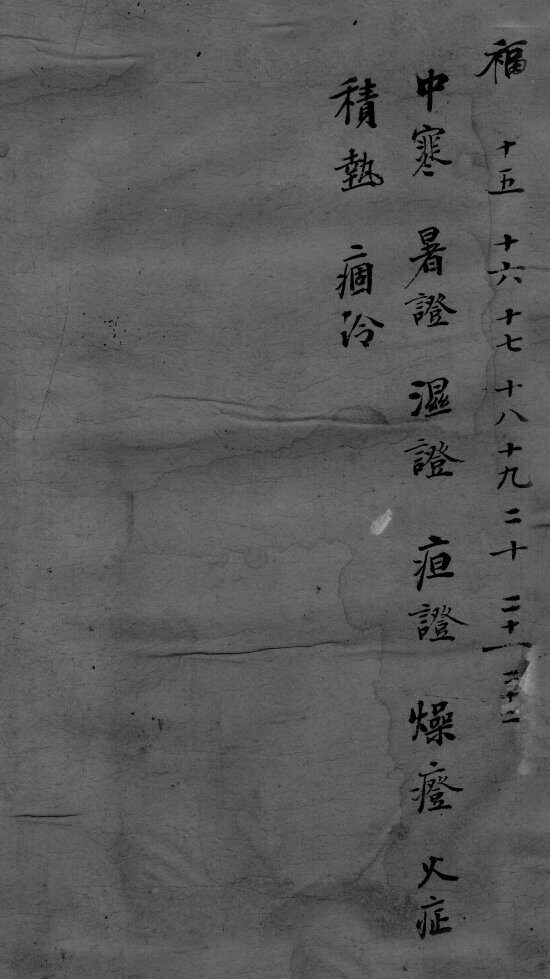 福 十五 十六 十七 十八 十九 二十 二十一 二十二
中寒 暑證 濕證 疸證 燥癊 火症
積熱 痼冷